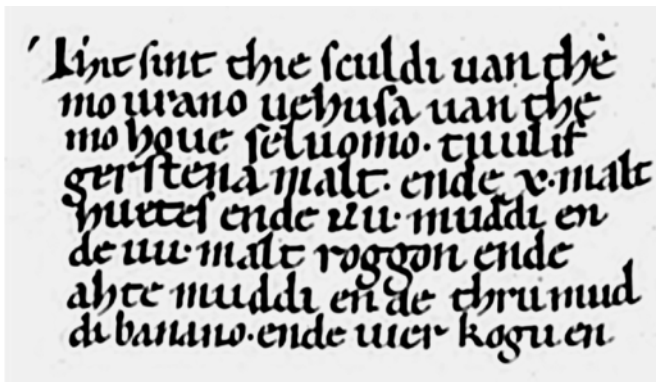 Thit sint thie sculdi uan the
mo urano uehusa uan the
mo houe seluomo · tuulif
gerstena malt · ende x · malt
huetes ende iiii · muddi en
de iiii · malt roggon ende
ahte muddi ende thru mud
di banano · ende uier kogii en